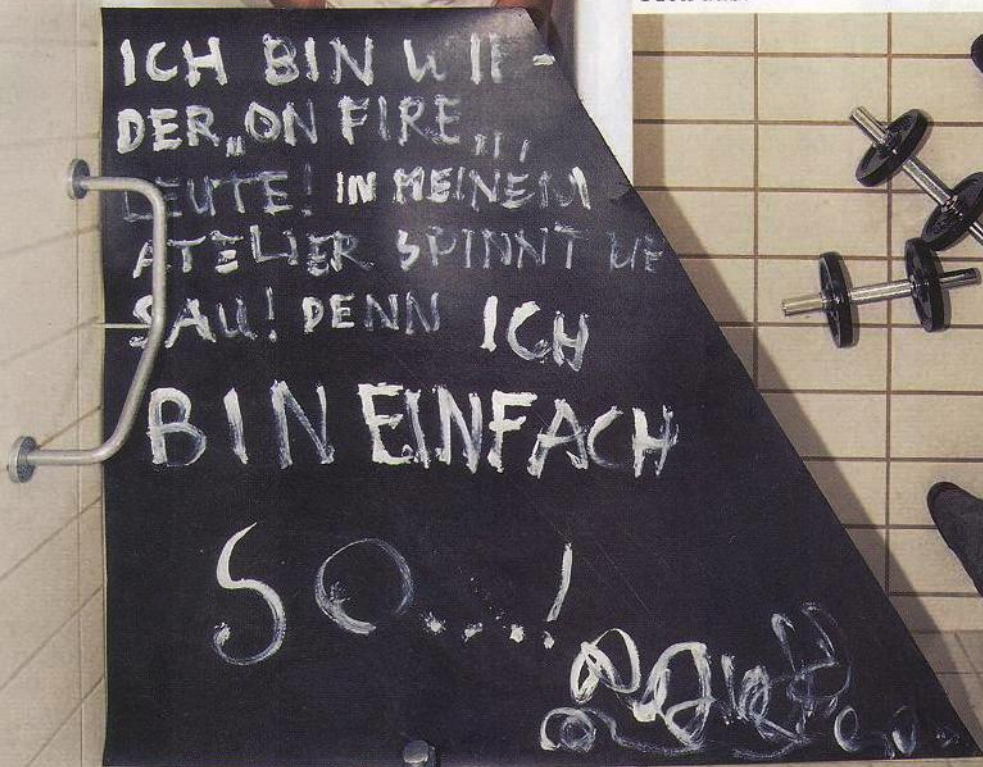 ICH BIN WIE-
DER „ON FIRE„,
LEUTE! IN MEINEM
ATELIER SPINNT DIE
SAU! DENN ICH
BIN EINFACH
SO...!